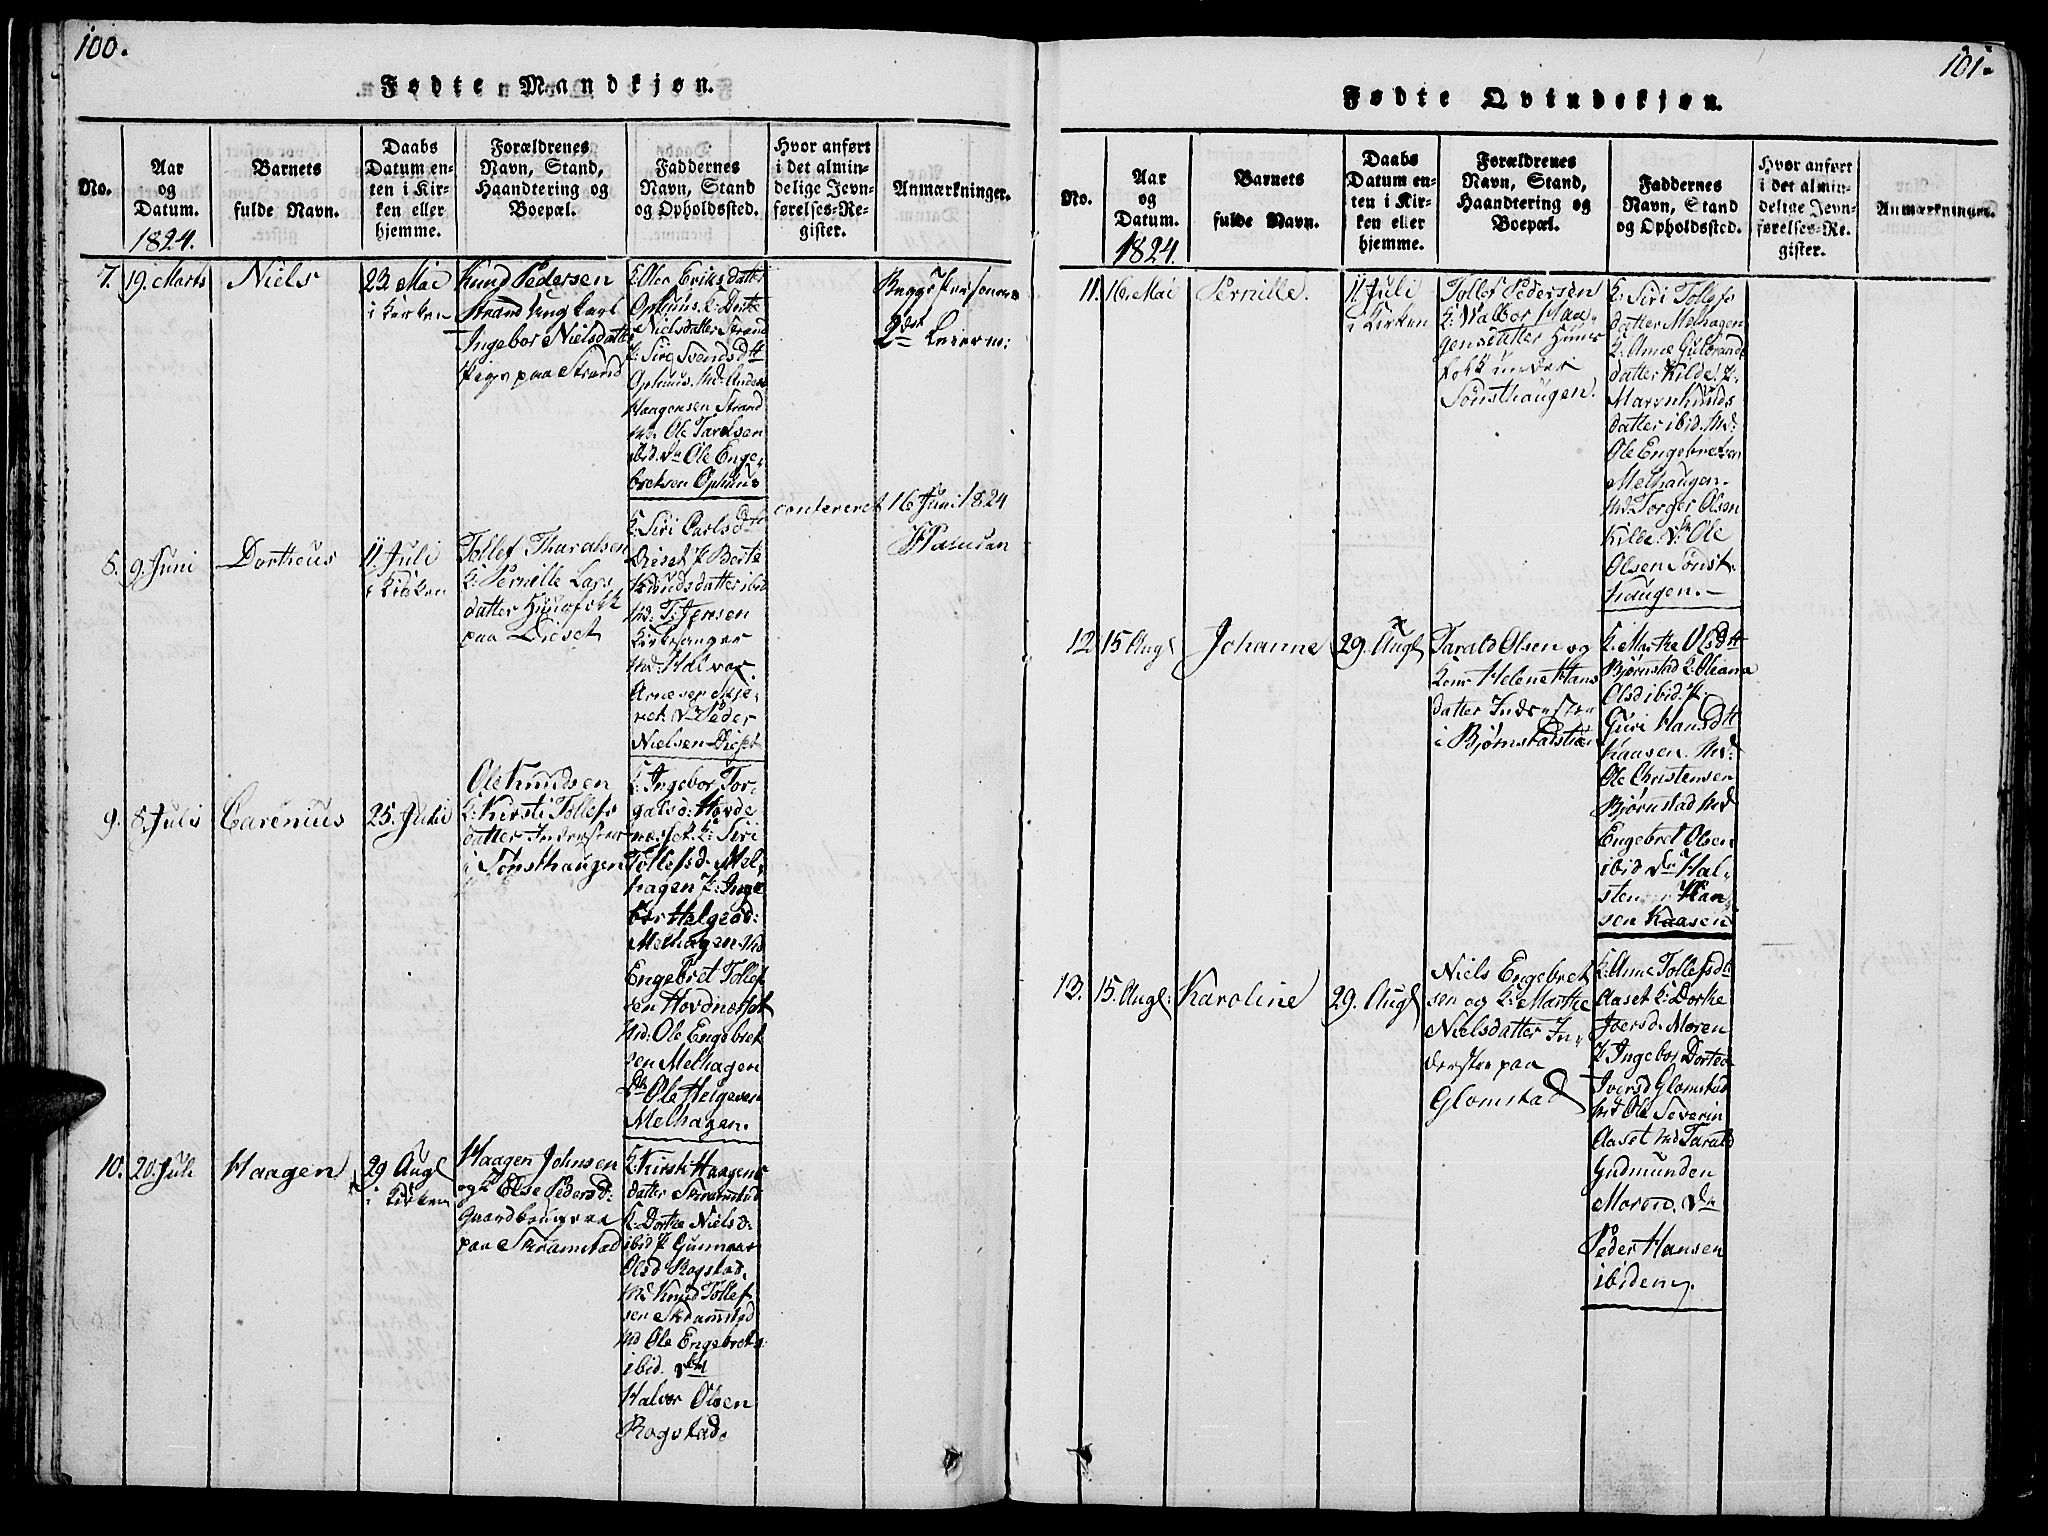 100.
Fødte Mandkjøn.
No.
Aar
og
Datum.
1824.
Barnets
fulde Navn.
Daabs
Datum en-
ten i Kir-
ken eller
hjemme.
Forældrenes
Navn, Stand,
Haandtering og
Boepæl.
Faddernes
Navn, Stand
og Opholdssted.
Hvor anført
i det almin-
delige Jevn-
førelses-Re-
gister.
Anmærkninger.
7. 19. Marts
Niels
23 Mai
i Kirken
Knud Pedersen
Strand Ungkarl
Ingebor Nielsdatter
Pige paa Strand
Eriksdatter
Ophuus. K: Berte
Nielsdatter Strand
P: Siri Svendsdtt
Ophuus. Md: Anders
Haagensen Strand
Md. Ole Taralsen
ibid. Ole Enge-
bretsen Ophuus
Begge Personers
2det Leierm:
confereret 16 Juni 1824
8. 9. Juni
Dortheus
11 Juli
i Kirken
Tollef Tharalsen
K: Pernille Lars
datter Huusfolk
paa Dieset
K: Siri Carlsdtr
Dieset P. Berte
Knudsdatter ibid
Md: T: Jensen
Kirkesanger
Md. Halvor
Arnesen Skje-
ret. Peder
Nielsen Dieset
9. 8. Juli
Carenius
25. Julii
Ole Knudsen
K: Kirsti Tollefs
datter Inderster
i Sønsthaugen
K: Ingebor Tor-
galsd: Hovde
næsset. K: Siri
Tollefsd. Mel-
hagen P: Inge
bor Helgesd:
Melhagen. Md
Engebret Tollef
sen Hovdnesset
Md: Ole Engebret
sen Melhagen
Ole Helgesen
Melhagen.
10. 20. Juli
Haagen
29 Augt
i Kirken
Haagen Johnsen
og K Else Pedersd:
Gaardbrugere
paa Skramstad
K: Kirsti Haagens
datter Skramstad
K: Dorthe Nielsd:
ibid P Gunnaar
Olsd Rogstad.
Md Knud Tollef
sen Skramstad
Md Ole Engebrets:
ibid.
Halvor Olsen
Rogstad.
101.
Fødte Qvindekjøn.
No.
Aar
og
Datum.
1824.
Barnets
fulde Navn.
Daabs
Datum en-
ten i Kir-
ken eller
hjemme.
Forældrenes
Navn, Stand,
Haandtering og
Boepæl.
Faddernes
Navn, Stand
og Opholdssted.
Hvor anført
i det almin-
delige Jevn-
førelses-Re-
gister.
Anmærkninger.
11. 16. Mai
Pernille.
11 Juli
i Kirken
Tollef Pedersen
K: Valbor Haa-
gensdatter Huus
folk under
Sønsthaugen.
K: Siri Tollefs
datter Melhagen
K: Anne Gulbrands
datter Kilde. P:
datter ibid. Md:
Ole Engebretsen
Melhaugen.
Md. Torger Olsen
Kilde. Ole
Olsen Sønst-
haugen.
12. 15 Augt
Johanne
29. Augt
Tarald Olsen og
Kone Helene Hans
datter Inderstre
i Bjørnstad
K: Marthe Olsdtt
Bjørnstad K: Oliana
Olsd ibid. P.
Guri Hansdtt
Kaasen. Md:
Ole Christensen
Bjørnstad Md
Engebret Olsen
ibid Hal-
sten Han
sen Kaasen
13. 15. Augt:
Karoline
29. Augt
Niels Engebret
sen og K: Marthe
Nielsdatter In-
derstre paa
Glomstad
K: Anne Tollefsdtr
Aaset K: Dorthe
Iversd. Moren
P. Ingebor Dortea
Iversd Glomstad
Md Ole Severin
Aaset Md Tarald
Gudmunden
Moren.
Peder Hansen
ibidem.